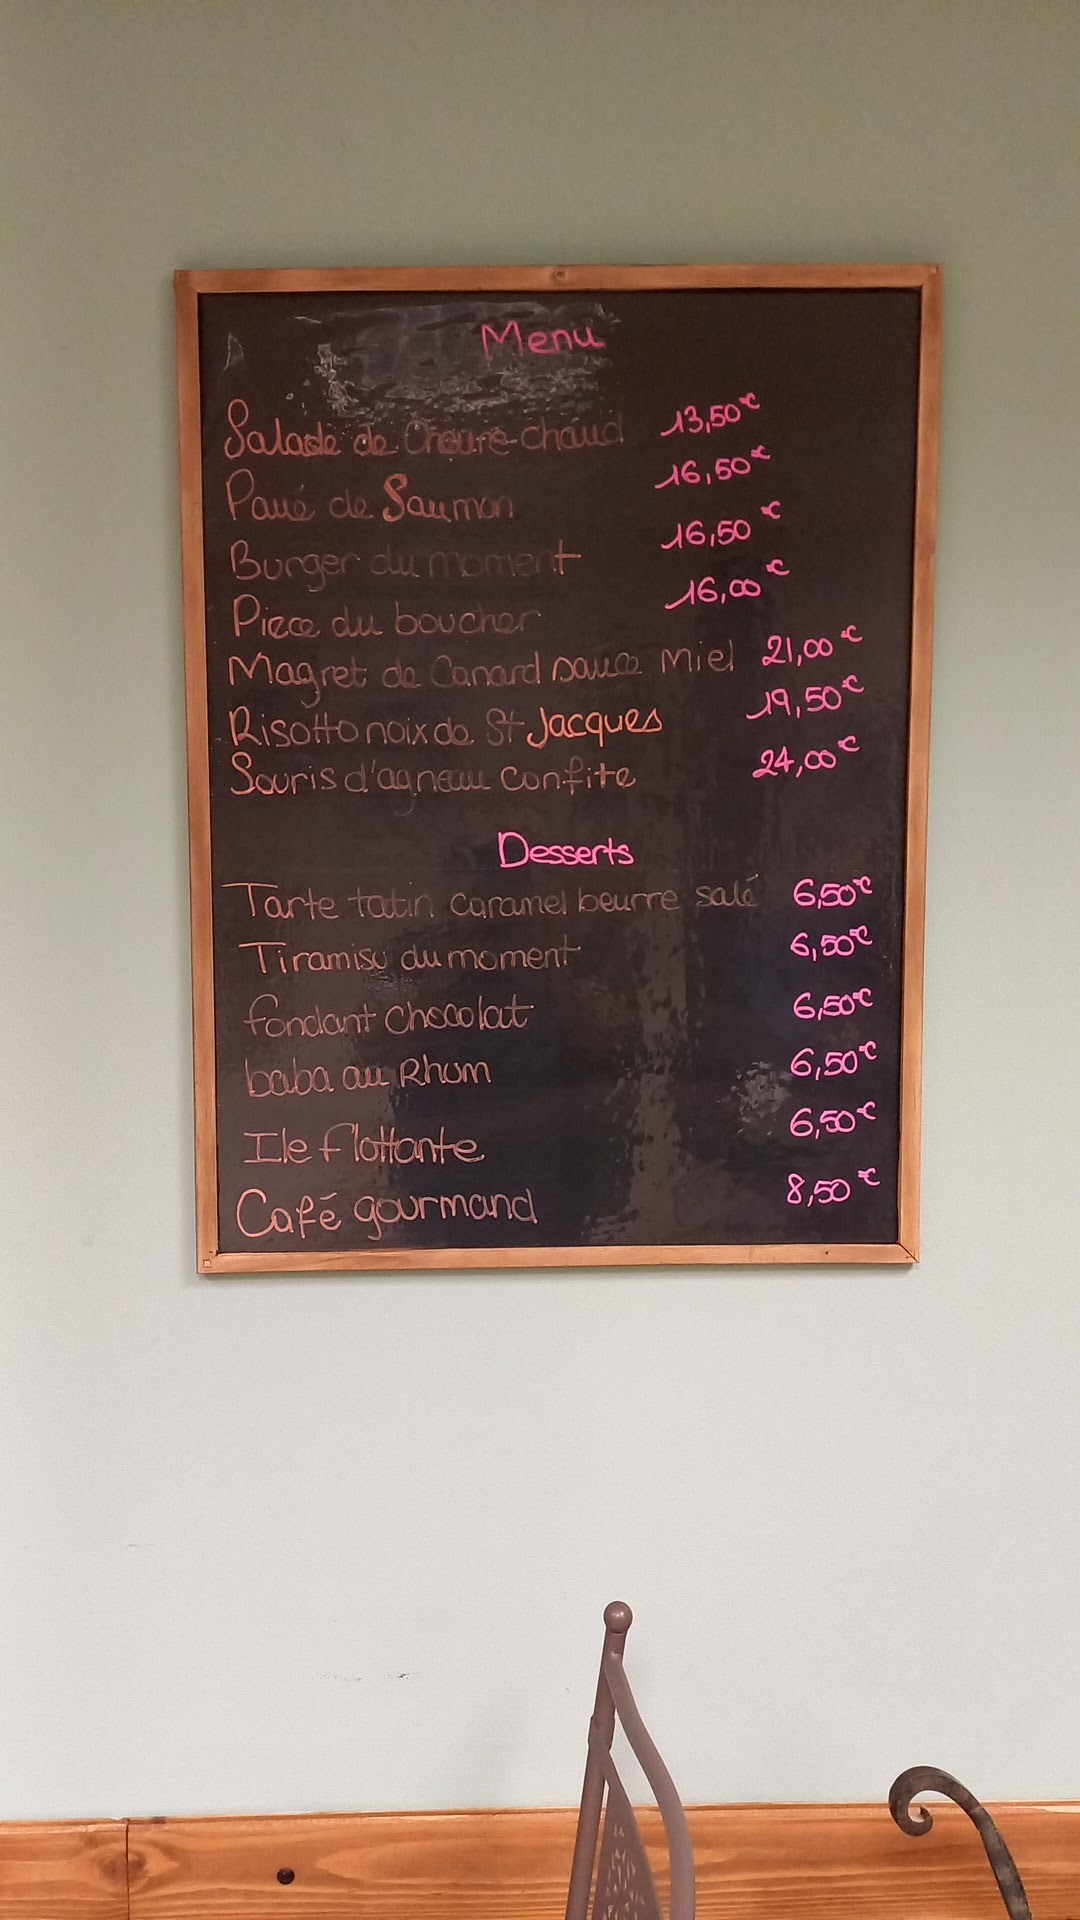 Menu
Salade de Chèvre chaud 13,50€
Pavé de Saumon 16,50€
Burger du moment 16,50€
Piece du boucher 16,00€
Magret de Canard sauce Miel 21,00€
Risotto noix de St Jacques 19,50€
Souris d'agneau confite 24,00€
Desserts
Tarte tatin caramel beurre salé 6,50€
Tiramisu du moment 6,50€
fondant chocolat 6,50€
baba au Rhum 6,50€
Ile flottante 6,50€
Café gourmand 8,50€